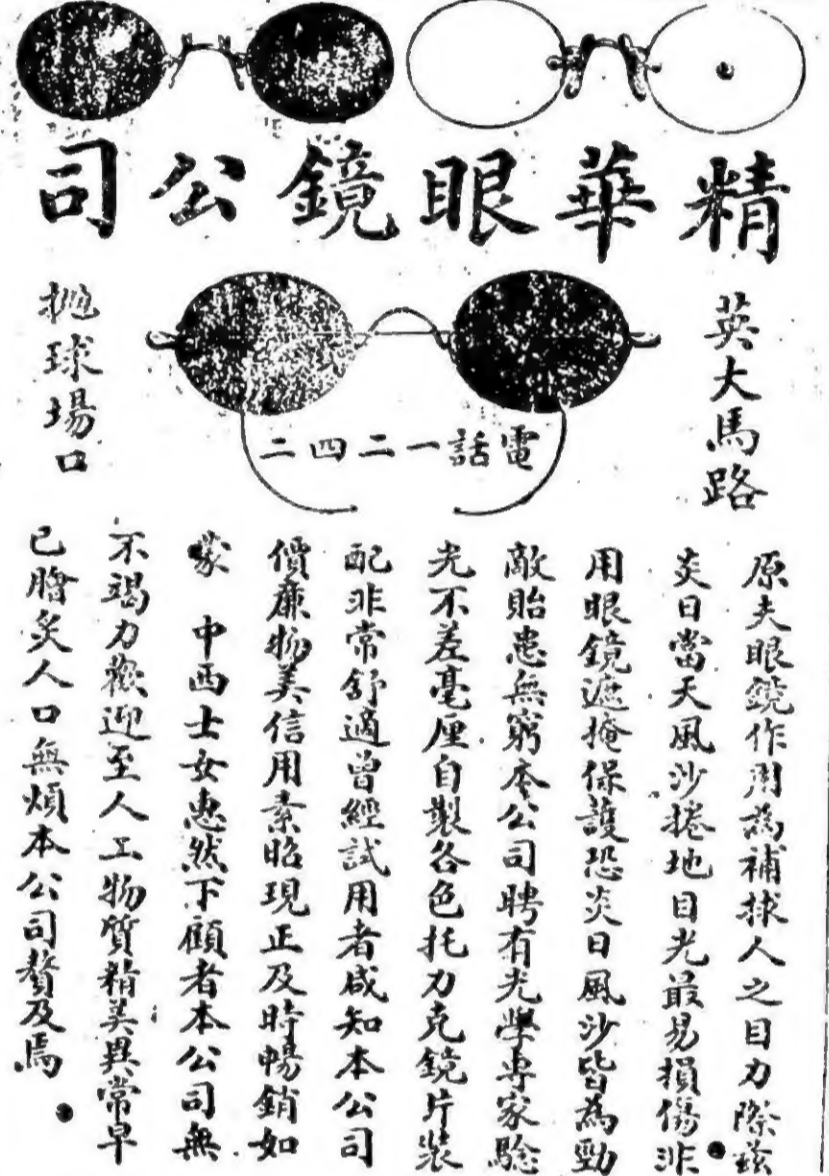 精華眼鏡公司
英大馬路
拋球場口
電話一二四二
原夫眼鏡作用為補救人之目力際茲
炎日當天風沙捲地目光最易損傷非
用眼鏡遮掩保護恐炎日風沙皆為勁
敵貽患無窮本公司聘有光學專家驗
光不差毫厘自製各色托力克鏡片裝
配非常舒適曾經試用者咸知本公司
價廉物美信用素昭現正及時暢銷如
蒙 中西士女惠然下顧者本公司無
不竭力歡迎至人工物質精美異常早
已膾炙人口無煩本公司贅及焉